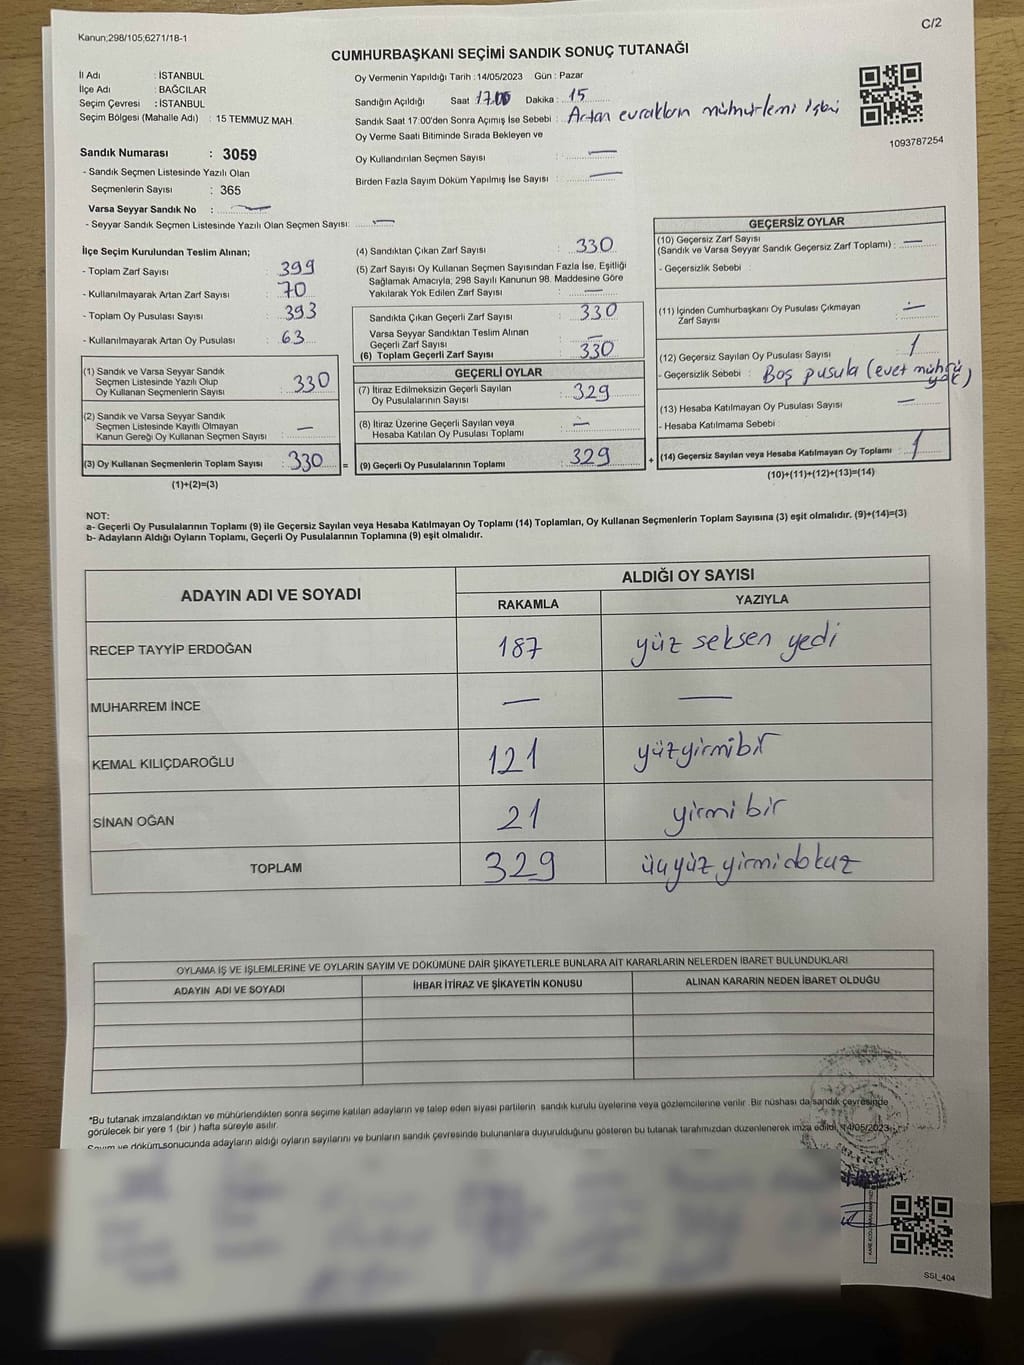 Kanun;298/105;6271/18-1
C/2
CUMHURBAŞKANI SEÇİMİ SANDIK SONUÇ TUTANAĞI
İl Adı : İSTANBUL
İlçe Adı : BAĞCILAR
Seçim Çevresi : İSTANBUL
Seçim Bölgesi (Mahalle Adı) : 15 TEMMUZ MAH.
Sandık Numarası : 3059
- Sandık Seçmen Listesinde Yazılı Olan
Seçmenlerin Sayısı : 365
Varsa Seyyar Sandık No : —
- Seyyar Sandık Seçmen Listesinde Yazılı Olan Seçmen Sayısı: —
Oy Vermenin Yapıldığı Tarih : 14/05/2023 Gün : Pazar
Sandığın Açıldığı Saat 17.00 Dakika : 15
Sandık Saat 17:00'den Sonra Açımış İse Sebebi : Artan evrakların mühürlemi işlemi
Oy Verme Saati Bitiminde Sırada Bekleyen ve
Oy Kullandırılan Seçmen Sayısı : —
Birden Fazla Sayım Döküm Yapılmış İse Sayısı : —
1093787254
İlçe Seçim Kurulundan Teslim Alınan;
- Toplam Zarf Sayısı : 399
- Kullanılmayarak Artan Zarf Sayısı : 70
- Toplam Oy Pusulası Sayısı : 393
- Kullanılmayarak Artan Oy Pusulası : 63
(1) Sandık ve Varsa Seyyar Sandık
Seçmen Listesinde Yazılı Olup
Oy Kullanan Seçmenlerin Sayısı : 330
(2) Sandık ve Varsa Seyyar Sandık
Seçmen Listesinde Kayıtlı Olmayan
Kanun Gereği Oy Kullanan Seçmen Sayısı : —
(3) Oy Kullanan Seçmenlerin Toplam Sayısı : 330 =
(1)+(2)=(3)
(4) Sandıktan Çıkan Zarf Sayısı : 330
(5) Zarf Sayısı Oy Kullanan Seçmen Sayısından Fazla İse, Eşitliği
Sağlamak Amacıyla, 298 Sayılı Kanunun 98. Maddesine Göre
Yakılarak Yok Edilen Zarf Sayısı : —
Sandıkta Çıkan Geçerli Zarf Sayısı : 330
Varsa Seyyar Sandıktan Teslim Alınan
Geçerli Zarf Sayısı : —
(6) Toplam Geçerli Zarf Sayısı : 330
GEÇERLİ OYLAR
(7) İtiraz Edilmeksizin Geçerli Sayılan
Oy Pusulalarının Sayısı : 329
(8) İtiraz Üzerine Geçerli Sayılan veya
Hesaba Katılan Oy Pusulası Toplamı : —
(9) Geçerli Oy Pusulalarının Toplamı : 329 +
GEÇERSİZ OYLAR
(10) Geçersiz Zarf Sayısı
(Sandık ve Varsa Seyyar Sandık Geçersiz Zarf Toplamı) : —
- Geçersizlik Sebebi :
(11) İçinden Cumhurbaşkanı Oy Pusulası Çıkmayan
Zarf Sayısı : —
(12) Geçersiz Sayılan Oy Pusulası Sayısı : 1
- Geçersizlik Sebebi : Boş pusula (evet mührü
yok)
(13) Hesaba Katılmayan Oy Pusulası Sayısı : —
- Hesaba Katılmama Sebebi :
(14) Geçersiz Sayılan veya Hesaba Katılmayan Oy Toplamı : 1
(10)+(11)+(12)+(13)=(14)
NOT:
a- Geçerli Oy Pusulalarının Toplamı (9) ile Geçersiz Sayılan veya Hesaba Katılmayan Oy Toplamı (14) Toplamları, Oy Kullanan Seçmenlerin Toplam Sayısına (3) eşit olmalıdır. (9)+(14)=(3)
b- Adayların Aldığı Oyların Toplamı, Geçerli Oy Pusulalarının Toplamına (9) eşit olmalıdır.
ADAYIN ADI VE SOYADI
ALDIĞI OY SAYISI
RAKAMLA YAZIYLA
RECEP TAYYİP ERDOĞAN 187 yüz seksen yedi
MUHARREM İNCE — —
KEMAL KILIÇDAROĞLU 121 yüzyirmibir
SİNAN OĞAN 21 yirmi bir
TOPLAM 329 üçyüz yirmidokuz
OYLAMA İŞ VE İŞLEMLERİNE VE OYLARIN SAYIM VE DÖKÜMÜNE DAİR ŞİKAYETLERLE BUNLARA AİT KARARLARIN NELERDEN İBARET BULUNDUKLARI
ADAYIN ADI VE SOYADI İHBAR İTİRAZ VE ŞİKAYETİN KONUSU ALINAN KARARIN NEDEN İBARET OLDUĞU
*Bu tutanak imzalandıktan ve mühürlendikten sonra seçime katılan adayların ve talep eden siyasi partilerin sandık kurulu üyelerine veya gözlemcilerine verilir. Bir nüshası da sandık çevresinde
görülecek bir yere 1 (bir ) hafta süreyle asılır.
Sayım ve döküm sonucunda adayların aldığı oyların sayılarını ve bunların sandık çevresinde bulunanlara duyurulduğunu gösteren bu tutanak tarafımızdan düzenlenerek imza edildi. 14/05/2023
SSI_404